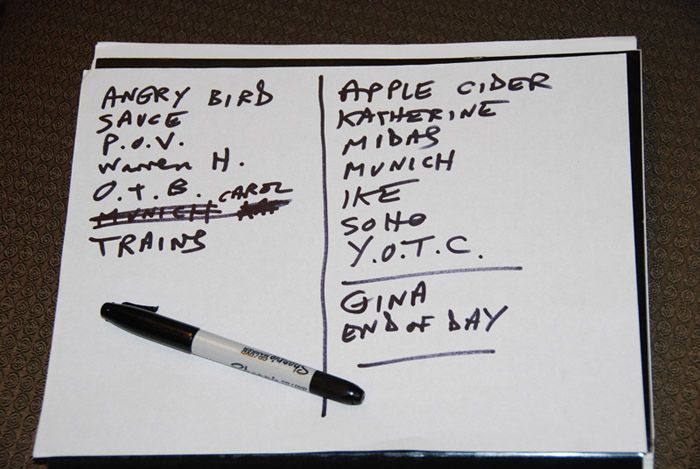 ANGRY BIRD
SAUCE
P.O.V.
Warren H.
O.T.B.
MUNICH CAROL
TRAINS
APPLE CIDER
KATHERINE
MIDAS
MUNICH
IKE
SOHO
Y.O.T.C.
GINA
END OF DAY
Sharpie